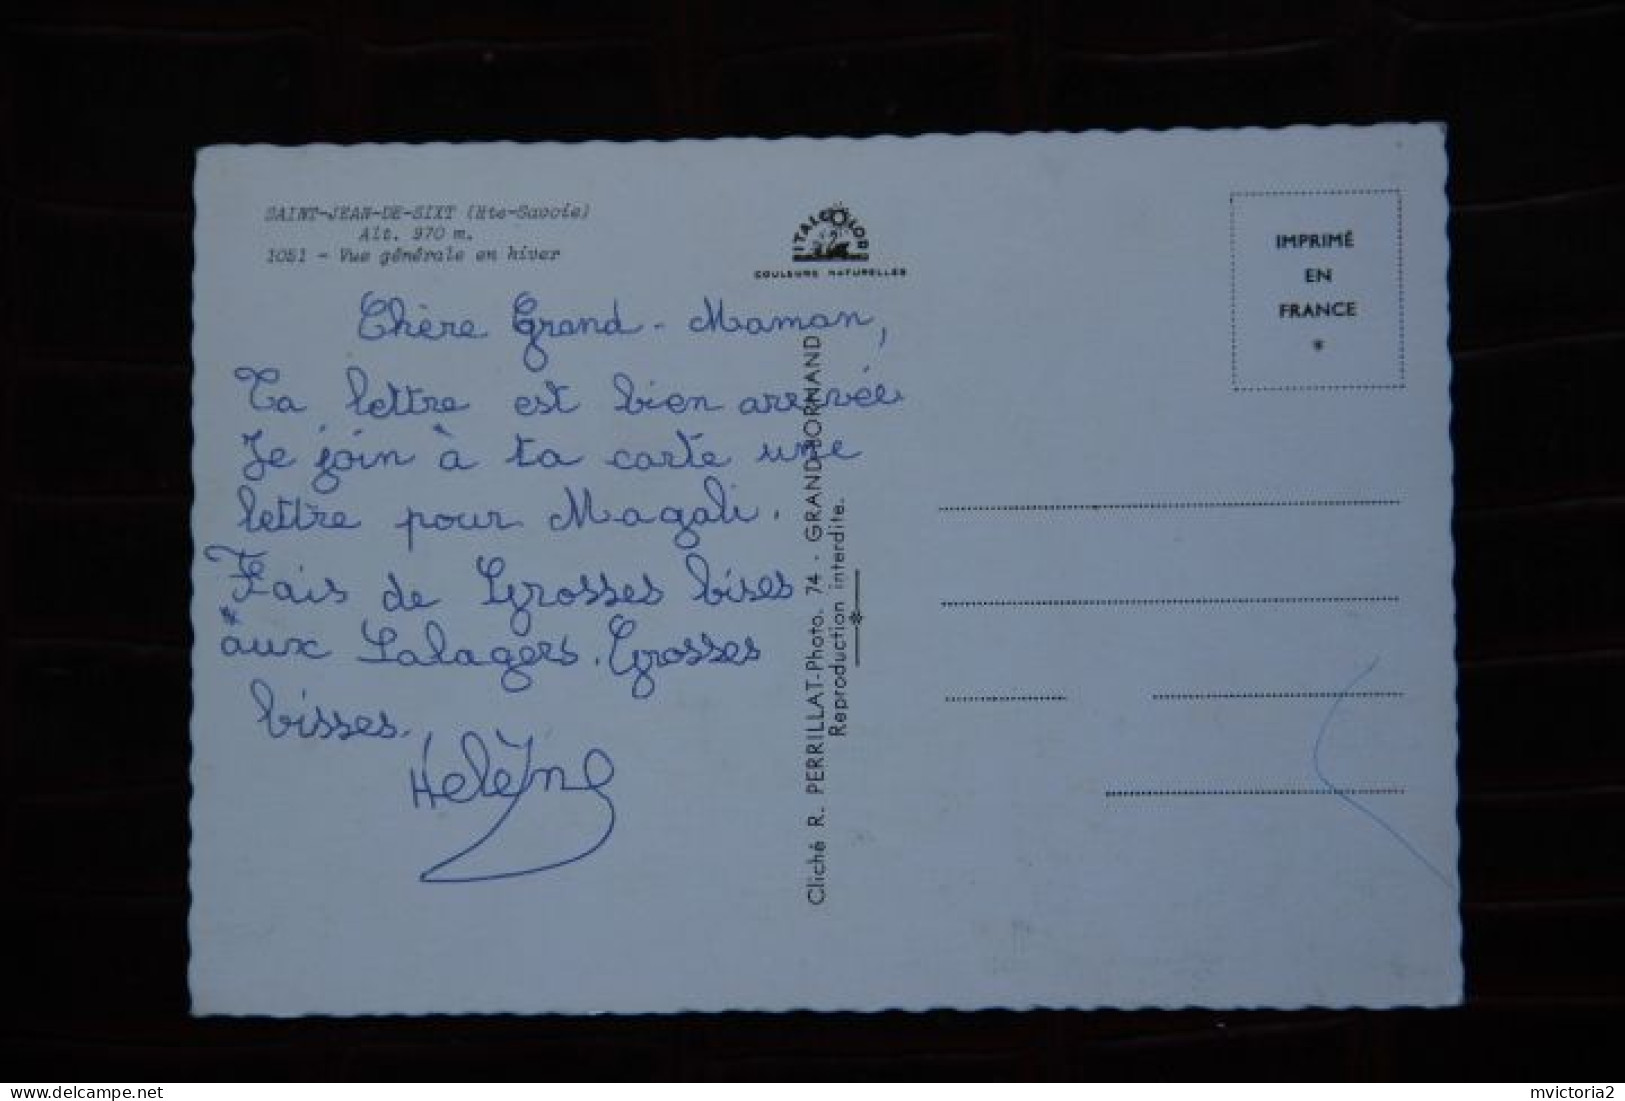 SAINT-JEAN-DE-SIXT (Hte-Savoie)
Alt. 970 m.
1051 - Vue générale en hiver
ITALCOLOR
COULEURS NATURELLES
IMPRIMÉ
EN
FRANCE
*
Chère Grand-Maman,
Ta lettre est bien arrivée
Je join à ta carte une
lettre pour Magali.
Fais de Grosses bises
aux Salagers. Grosses
bisses.
Helène
Cliché R. PERRILLAT-Photo. 74 - GRAND-BORNAND
Reproduction interdite.
delcampe.net
mvictoria2